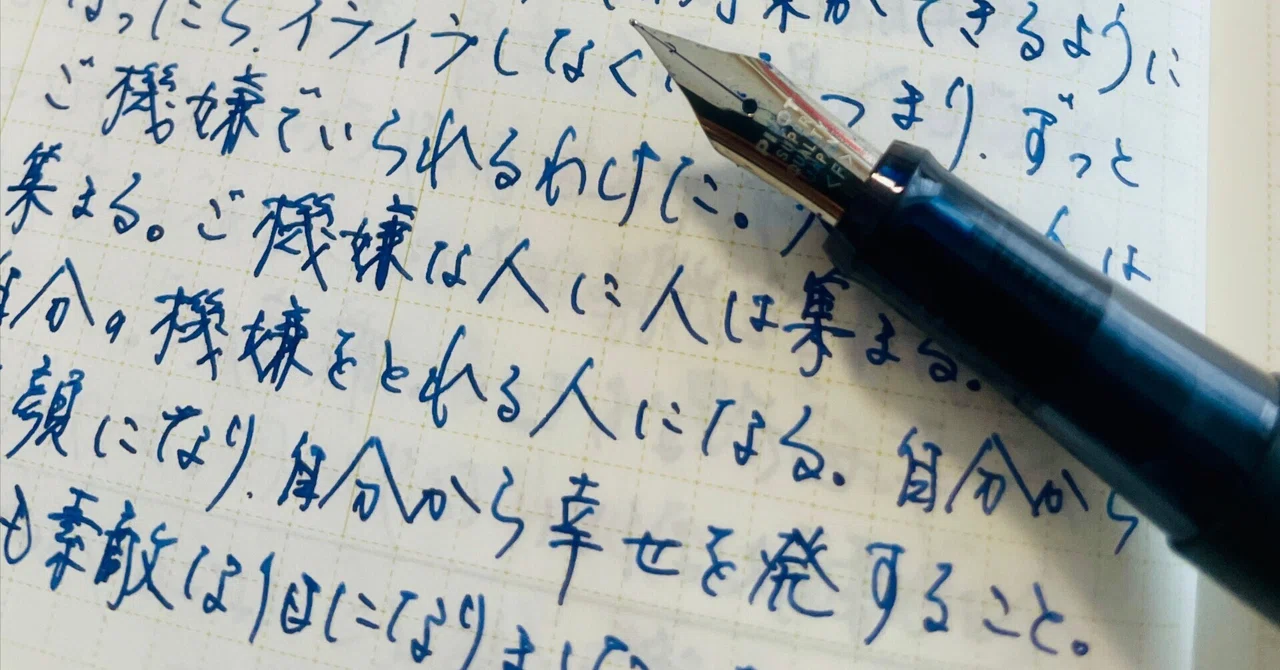 ったら、イライラしなく
できるように
ご機嫌でいられるわけだ。
つまり、ずっと
集まる。ご機嫌な人に人は集まる。
は
自分。機嫌をとれる人になる。自分から
顔になり、自分から幸せを発すること。
も素敵な1日になりました
PILOT